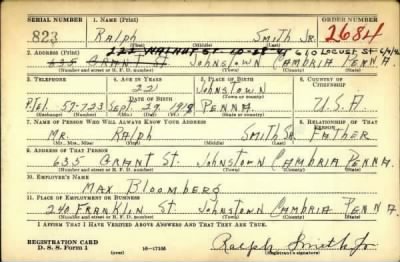 SERIAL NUMBER 1. NAME (Print) ORDER NUMBER
823 Ralph Smith Jr. 2684
(First) (Middle) (Last)
2. ADDRESS (Print) 222 WALNUT ST 10-28-41 610 Locust St 6/4/42
635 Grant St. Johnstown Cambria Penna
(Number and street or R. F. D. number) (Town) (County) (State)
3. TELEPHONE 4. AGE IN YEARS 5. PLACE OF BIRTH 6. COUNTRY OF CITIZENSHIP
22 Johnstown
DATE OF BIRTH (Town or county)
Tel. 57-723 Sept. 29 1918 Penna. U.S.A.
(Exchange) (Number) (Mo.) (Day) (Yr.) (State or country)
7. NAME OF PERSON WHO WILL ALWAYS KNOW YOUR ADDRESS 8. RELATIONSHIP OF THAT PERSON
Mr. Ralph Smith Sr. Father
(Mr., Mrs., Miss) (First) (Middle) (Last)
9. ADDRESS OF THAT PERSON
635 Grant St. Johnstown Cambria Penna.
(Number and street or R. F. D. number) (Town) (County) (State)
10. EMPLOYER'S NAME
Max Bloomberg
11. PLACE OF EMPLOYMENT OR BUSINESS
240 Franklin St Johnstown Cambria Penna
(Number and street or R. F. D. number) (Town) (County) (State)
I AFFIRM THAT I HAVE VERIFIED ABOVE ANSWERS AND THAT THEY ARE TRUE.
REGISTRATION CARD
D. S. S. Form 1 (over) 16-17105 Ralph Smith Jr
(Registrant's signature)